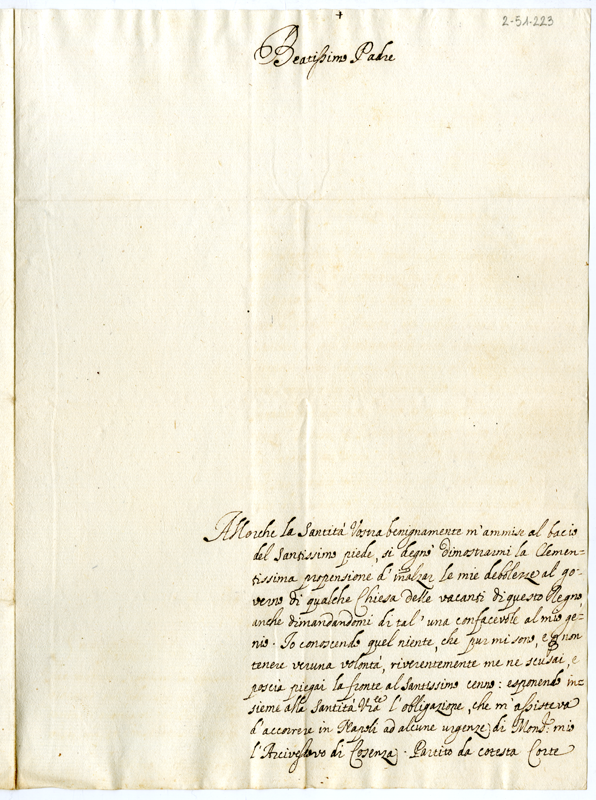 2-51-223
Beatissimo Padre
Allorche la Santità Vostra benignamente m'ammise al bacio
del Santissimo piede, si degnò dimostrarmi la Clemen=
tissima propensione d'inalzar le mie debolezze al go=
verno di qualche Chiesa delle vacanti di questo Regno,
anche dimandandomi di tal'una confacevole al mio ge=
nio. Io conoscendo quel niente, che pur mi sono, e non
tenere veruna volontà, riverentemente me ne scusai, e
poscia piegai la fronte al Santissimo cenno: esponendo in=
sieme alla Santità Vra l'obligazione, che m'assisteva
d'accorrere in Napoli ad alcune urgenze di Monsr. mio
l'Arcivescovo di Cosenza. Partito da cotesta Corte